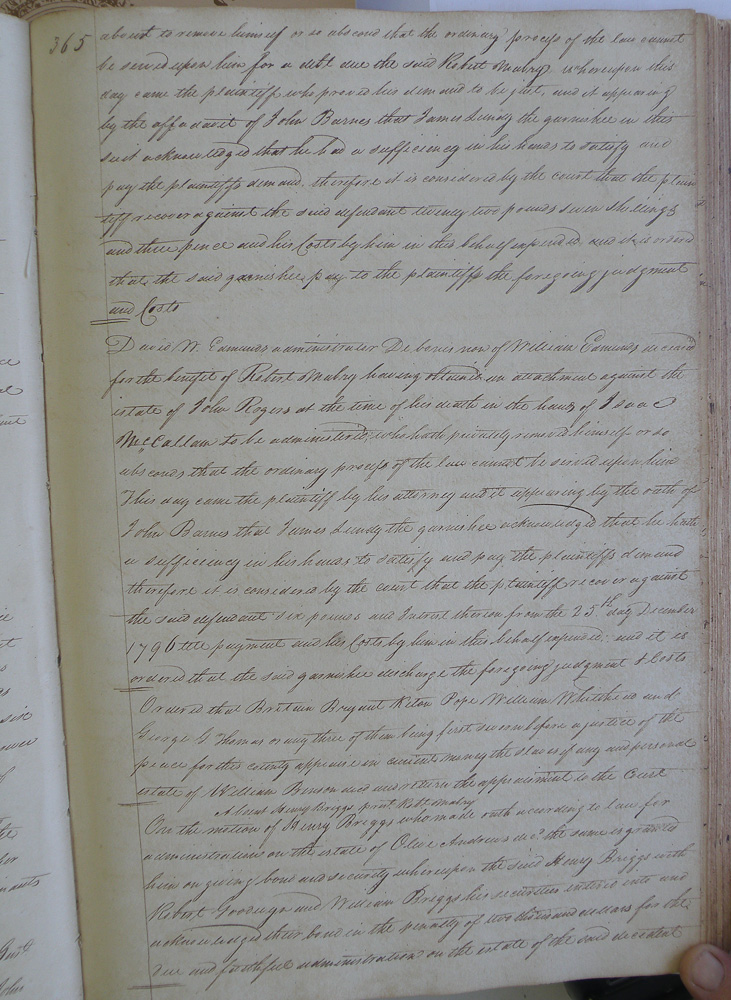 365
about to remove himself or so abscond that the ordinary process of the law cannot
be served upon him for a debt due the said Robert Mabry whereupon this
day came the plaintiff who proved his demand to be just, and it appearing
by the affadavit of John Barnes that James Lundy the garnishee in this
suit acknowledged that he had a sufficiency in his hands to satisfy and
pay the plaintiffs demand, therefore it is considered by the court that the plain
tiff recover against the said defendant twenty two pounds seven shillings
and three pence and his Costs by him in this behalf expended and it is ordered
that the said garnishee pay to the plaintiff the foregoing judgment
and Costs
David W. Edmunds administrator De bonis non of William Edmunds deceased
for the benefit of Robert Mabry having obtained an attachment against the
estate of John Rogers at the time of his death in the hands of Isaac
McCallam to be administered, who hath privately removed himself or so
absconds that the ordinary process of the law cannot be served upon him
This day came the plaintiff by his attorney and it appearing by the oath of
John Barnes that James Lundy the garnishee acknowledged that he hath
a sufficiency in his hands to satisfy and pay the plaintiffs demand
therefore it is considered by the court that the plaintiff recover against
the said defendant six pounds and Interest thereon from the 25th day December
1796 till payment and his Costs by him in this behalf expended; and it is
ordered that the said garnishee discharge the foregoing judgment & Costs
Ordered that Brittain Bryant Keton Pope William Whitehead and
George G Thomas or any three of them being first sworn before a justice of the
peace for this county appraise in current money the slaves if any and personal
estate of William Brinson decd and return the appraisment to the Court
Absent Henry Briggs prest Robt Mabry
On the motion of Henry Briggs who made oath according to law for
administration on the estate of Olive Andrews decd. the same is granted
him on giving bond and security whereupon the said Henry Briggs with
Robert Goodwyn and William Briggs his securities entered into and
acknowledged their bond in the penalty of two thousand dollars for the
due and faithful administration on the estate of the said decedent